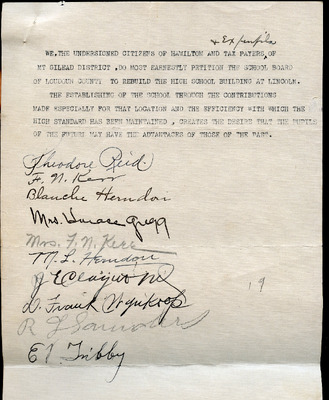 & Ex pupils
WE, THE UNDERSIGNED CITIZENS OF HAMILTON AND TAX PAYERS, OF
MT GILEAD DISTRICT, DO MOST EARNESTLY PETITION THE SCHOOL BOARD
OF LOUDOUN COUNTY TO REBUILD THE HIGH SCHOOL BUILDING AT LINCOLN.
THE ESTABLISHING OF THE SCHOOL THROUGH THE CONTRIBUTIONS
MADE ESPECIALLY FOR THAT LOCATION AND THE EFFICIENCY WITH WHICH THE
HIGH STANDARD HAS BEEN MAINTAINED, CREATES THE DESIRE THAT THE PUPILS
OF THE FUTURE MAY HAVE THE ADVANTAGES OF THOSE OF THE PAST.
Theodore Reid.
F. N. Kerr
Blanche Herndon
Mrs. Horace Gregg
Mrs. F. N. Kerr
M. L. Herndon
D. Frank Wynkoop
R L Saunders
E L Tribby
19